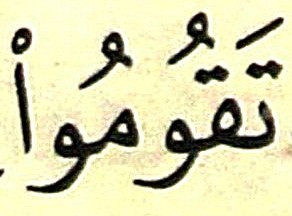 تَقُومُواْ